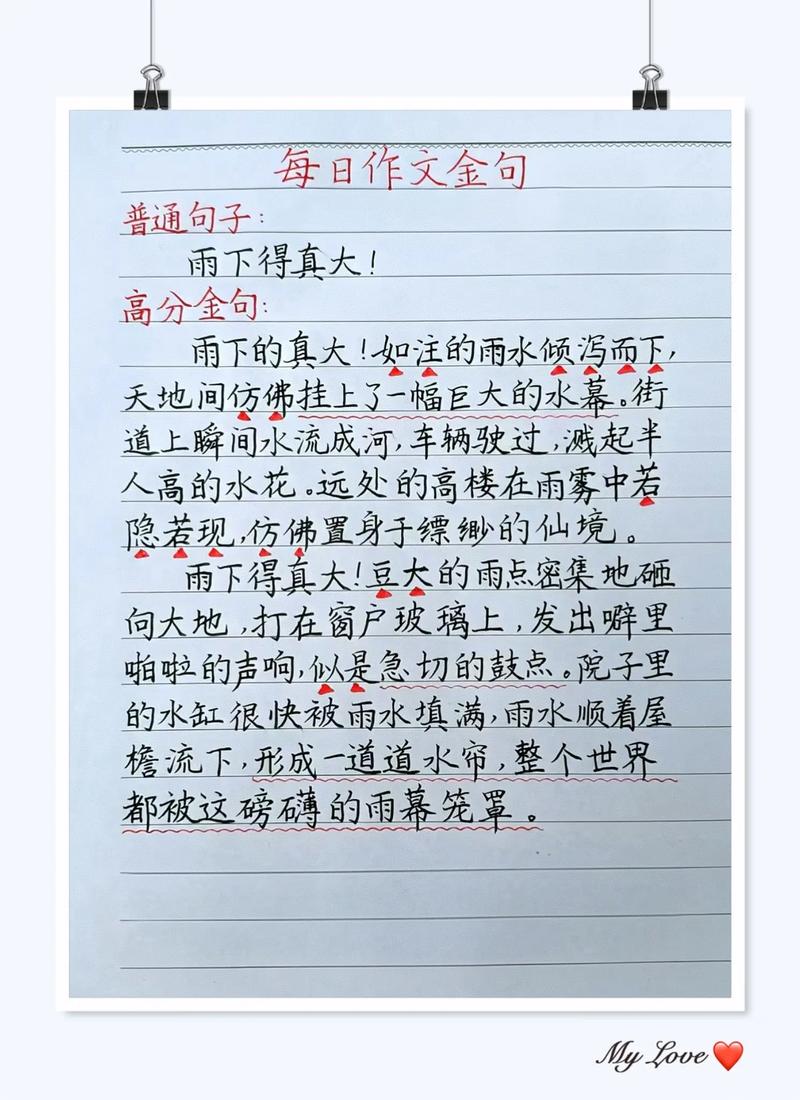 每日作文金句
普通句子:
雨下得真大!
高分金句:
雨下的真大!如注的雨水倾泻而下,
天地间仿佛挂上了一幅巨大的水幕。街
道上瞬间水流成河,车辆驶过,溅起半
人高的水花。远处的高楼在雨雾中若
隐若现,仿佛置身于缥缈的仙境。
雨下得真大!豆大的雨点密集地砸
向大地,打在窗户玻璃上,发出噼里
啪啦的声响,似是急切的鼓点。院子里
的水缸很快被雨水填满,雨水顺着屋
檐流下,形成一道道水帘,整个世界
都被这磅礴的雨幕笼罩。
My Love❤️